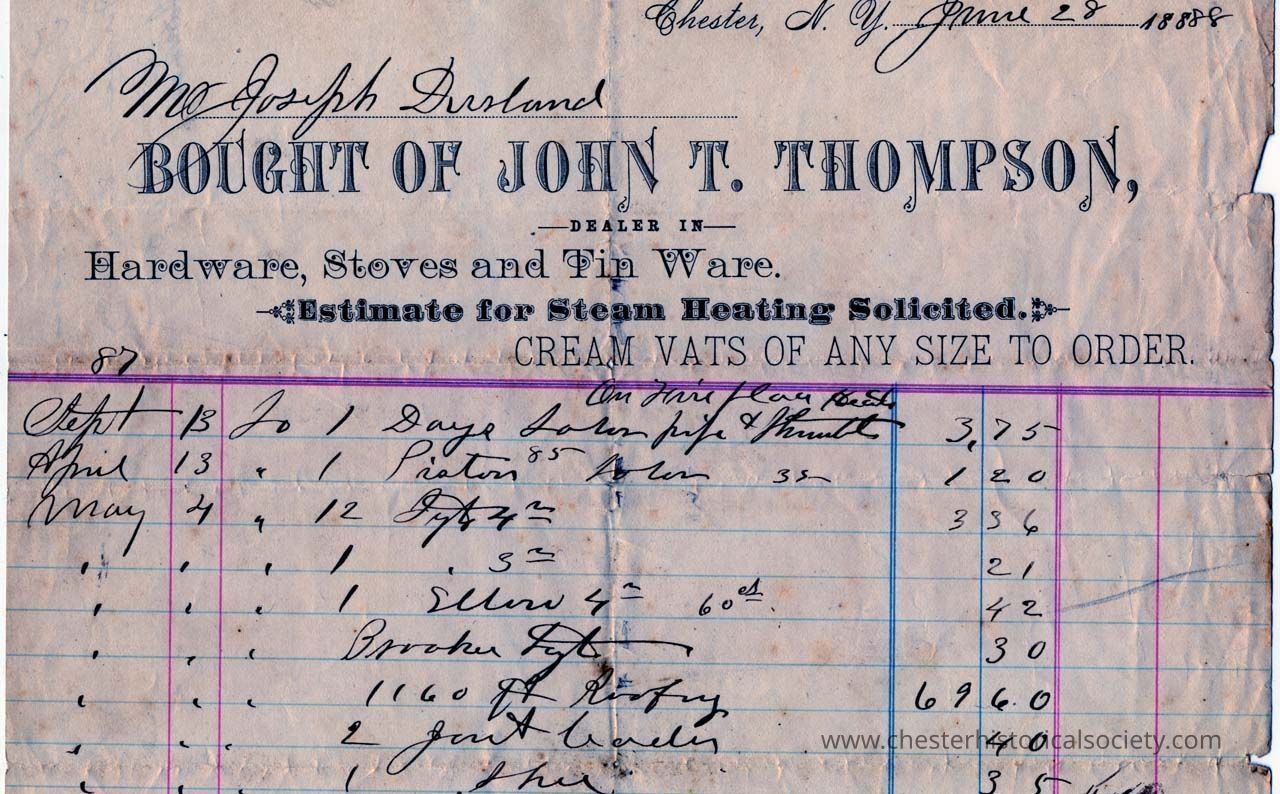 Chester, N. Y. June 28 18888
Mr Joseph Durland
BOUGHT OF JOHN T. THOMPSON,
DEALER IN
Hardware, Stoves and Tin Ware.
Estimate for Steam Heating Solicited.
CREAM VATS OF ANY SIZE TO ORDER.
87
On Fire place
Sept 13 To 1 Days Labor pipe & 3,75
April 13 " 1 Piston 85 Labor 35 1 20
May 4 " 12 4 in 3 36
" " " 1 " 3 in 21
" " " 1 Elbow 4 in 60 42
" " " 30
" " " 1160 ft Roofing 69 60
" " " 2 Joint Leader 40
" " " 1 Shoe 35
www.chesterhistoricalsociety.com